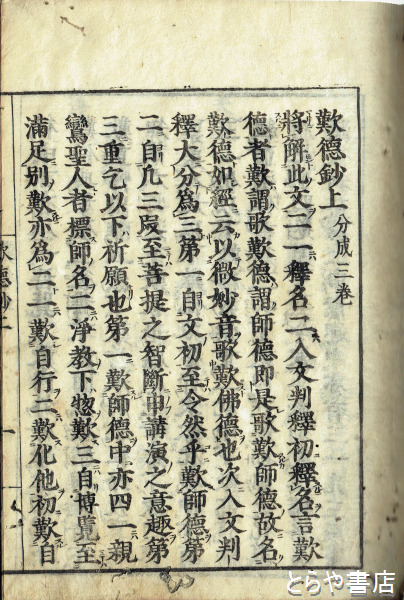 歎德鈔上 分成三卷
將解此文二一釋名二入文判釋初釋名言歎
德者歎謂歌歎德謂師德即是歌歎師德故名
歎德如經云以微妙音歌歎佛德也次入文判
釋大分為三第一自文初至令然乎歎師德第
二自凡三段至菩提之智斷申講演之意趣第
三重乞以下祈願也第一歎師德中亦四一親
鸞聖人者標師名二淨教下惣歎三自博覽至
滿足別歎亦為二一歎自行二歎化他初歎自
歎德鈔上
一
とらや書店